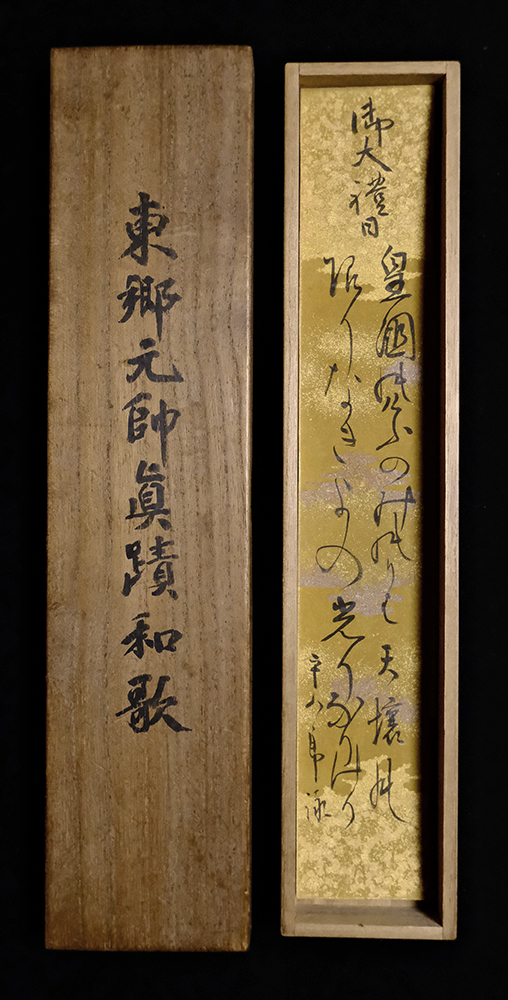 東郷元帥眞蹟和歌
御大禮日
皇國 の 天壌
限りなきよの光りなりけり
平八郎詠